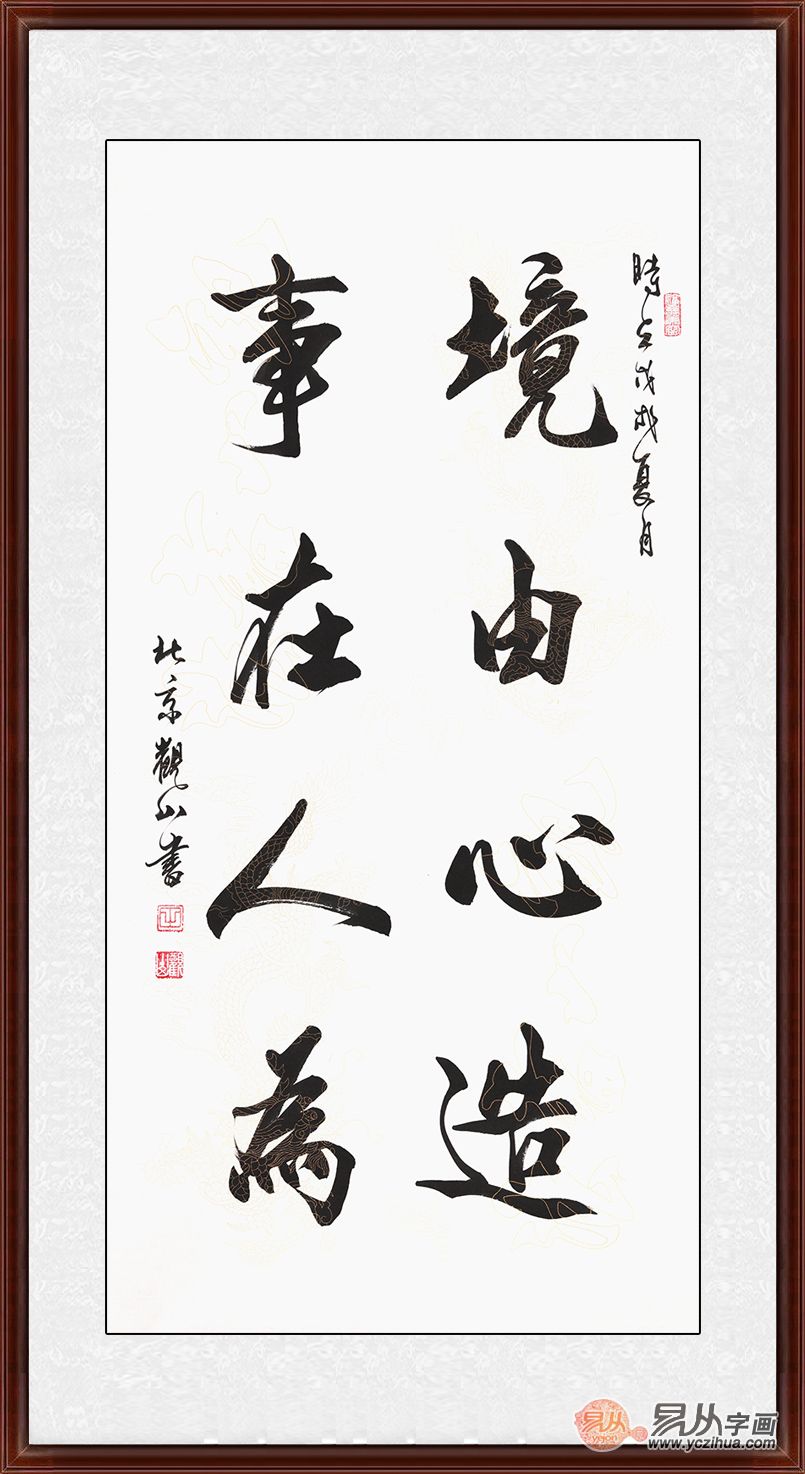 時在戊戌夏月
境由心造
事在人為
北京觀山書
易从
yejon
易从字画
www.yczihua.com